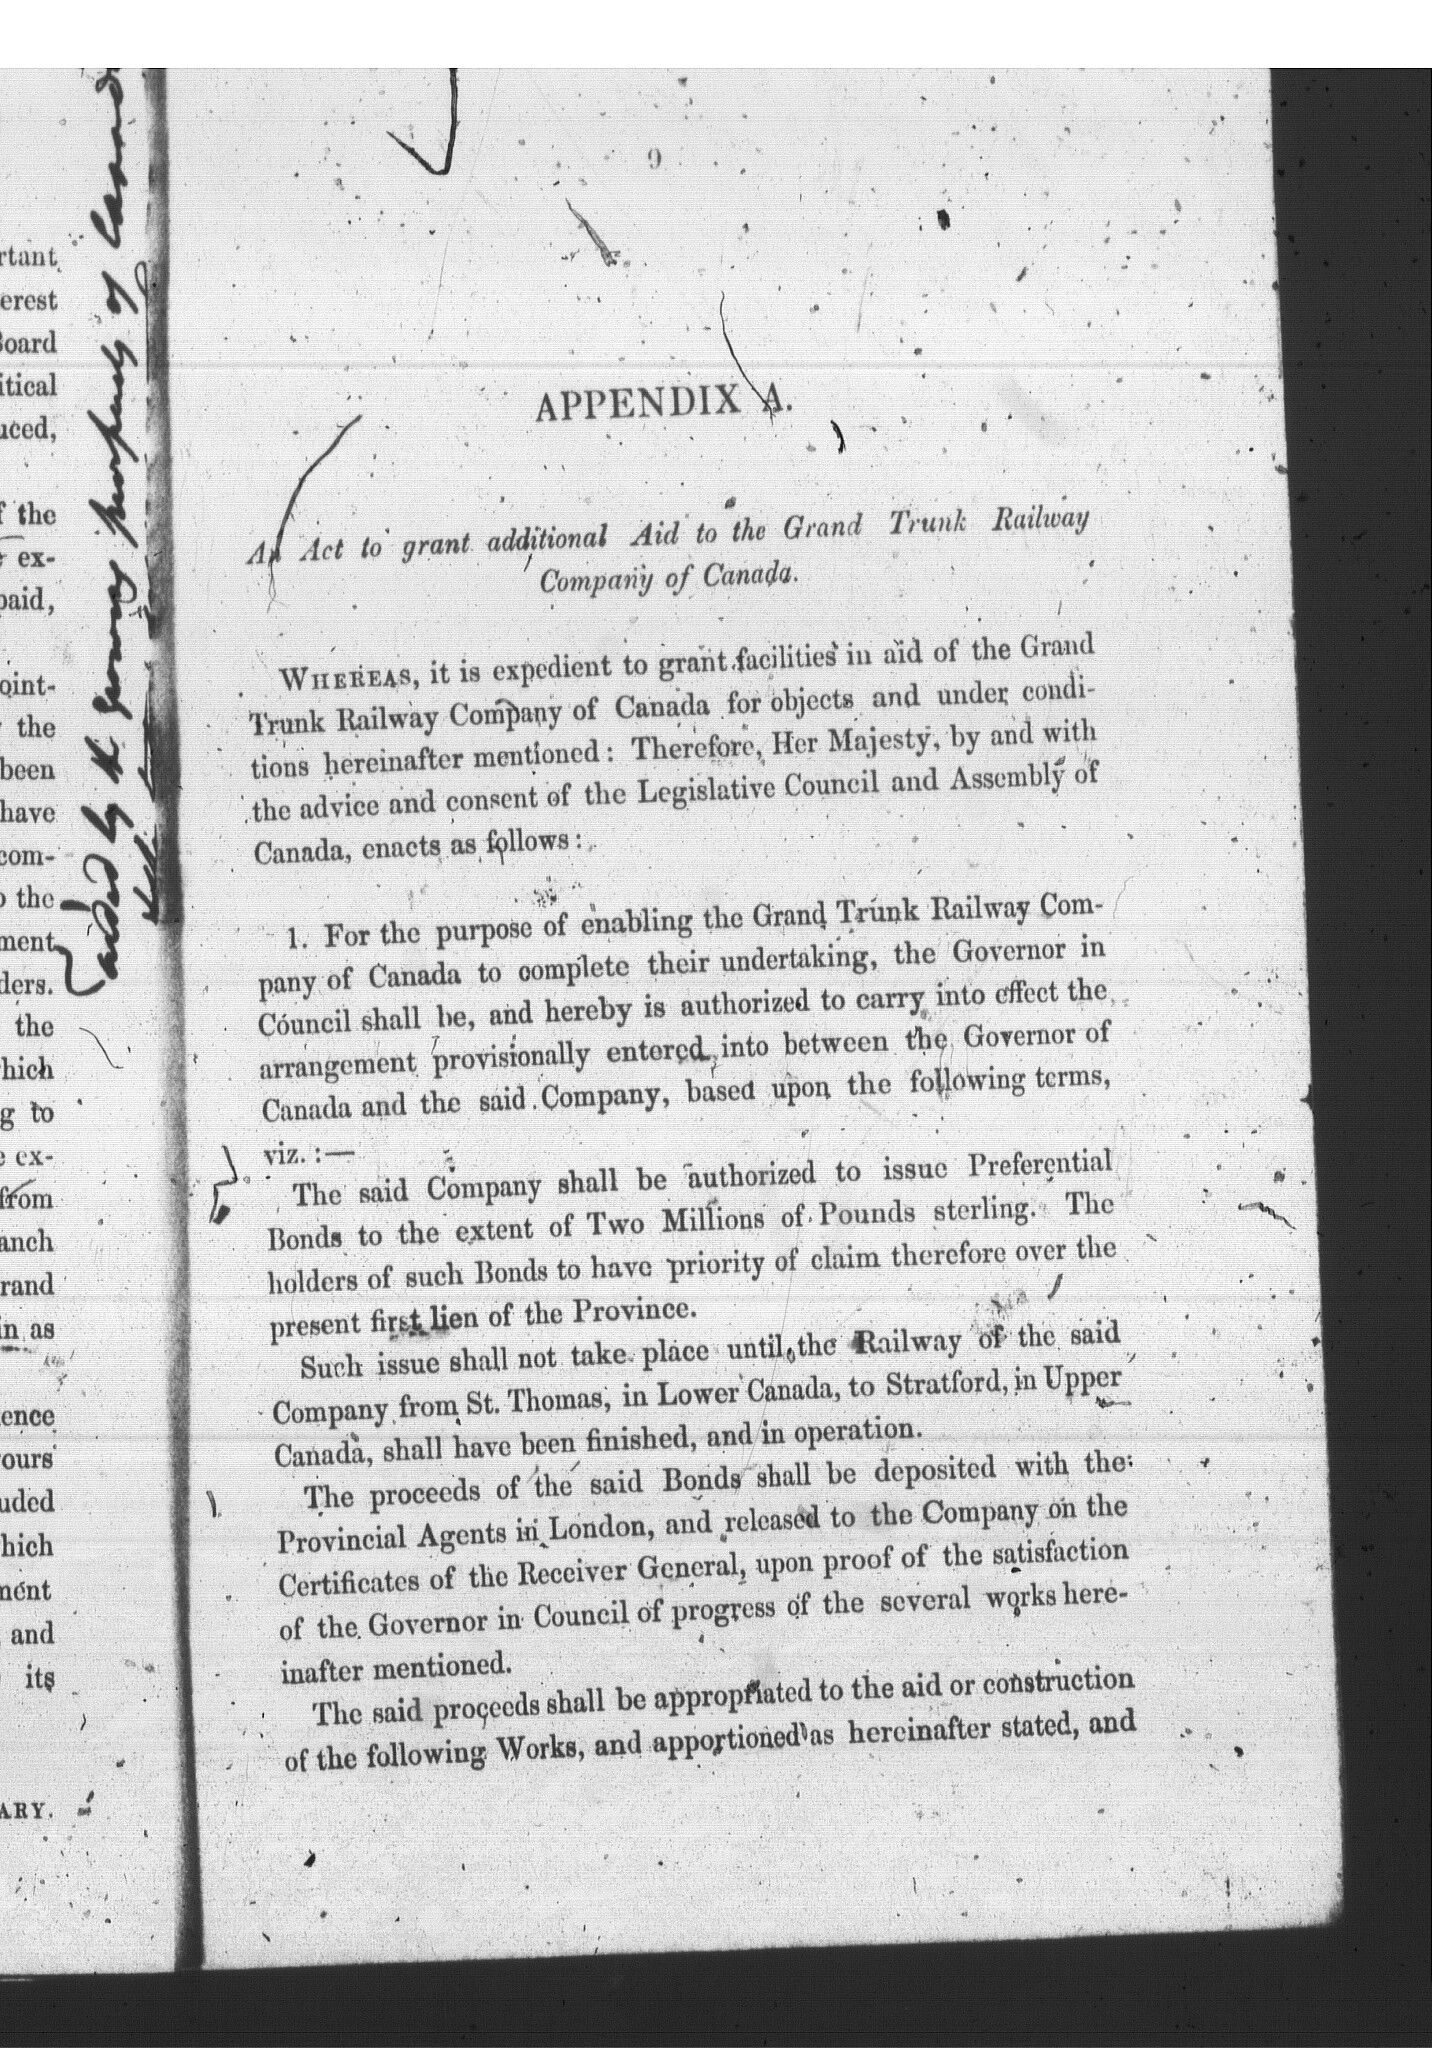 rtant
erest
Board
itical
uced,
f the
ex-
paid,
oint-
the
been
have
com-
the
ment
ders.
the
which
g to
ex-
from
anch
rand
in as
ence
yours
uded
hich
ment
and
its
ARY.
added by the growing prosperity of Canada
9
APPENDIX A.
An Act to grant additional Aid to the Grand Trunk Railway
Company of Canada.
WHEREAS, it is expedient to grant facilities in aid of the Grand
Trunk Railway Company of Canada for objects and under condi-
tions hereinafter mentioned: Therefore, Her Majesty, by and with
the advice and consent of the Legislative Council and Assembly of
Canada, enacts as follows:
1. For the purpose of enabling the Grand Trunk Railway Com-
pany of Canada to complete their undertaking, the Governor in
Council shall be, and hereby is authorized to carry into effect the
arrangement provisionally entered into between the Governor of
Canada and the said Company, based upon the following terms,
viz. :—
The said Company shall be authorized to issue Preferential
Bonds to the extent of Two Millions of Pounds sterling. The
holders of such Bonds to have priority of claim therefore over the
present first lien of the Province.
Such issue shall not take place until the Railway of the said
Company from St. Thomas, in Lower Canada, to Stratford, in Upper
Canada, shall have been finished, and in operation.
The proceeds of the said Bonds shall be deposited with the
Provincial Agents in London, and released to the Company on the
Certificates of the Receiver General, upon proof of the satisfaction
of the Governor in Council of progress of the several works here-
inafter mentioned.
The said proceeds shall be appropriated to the aid or construction
of the following Works, and apportioned as hereinafter stated, and